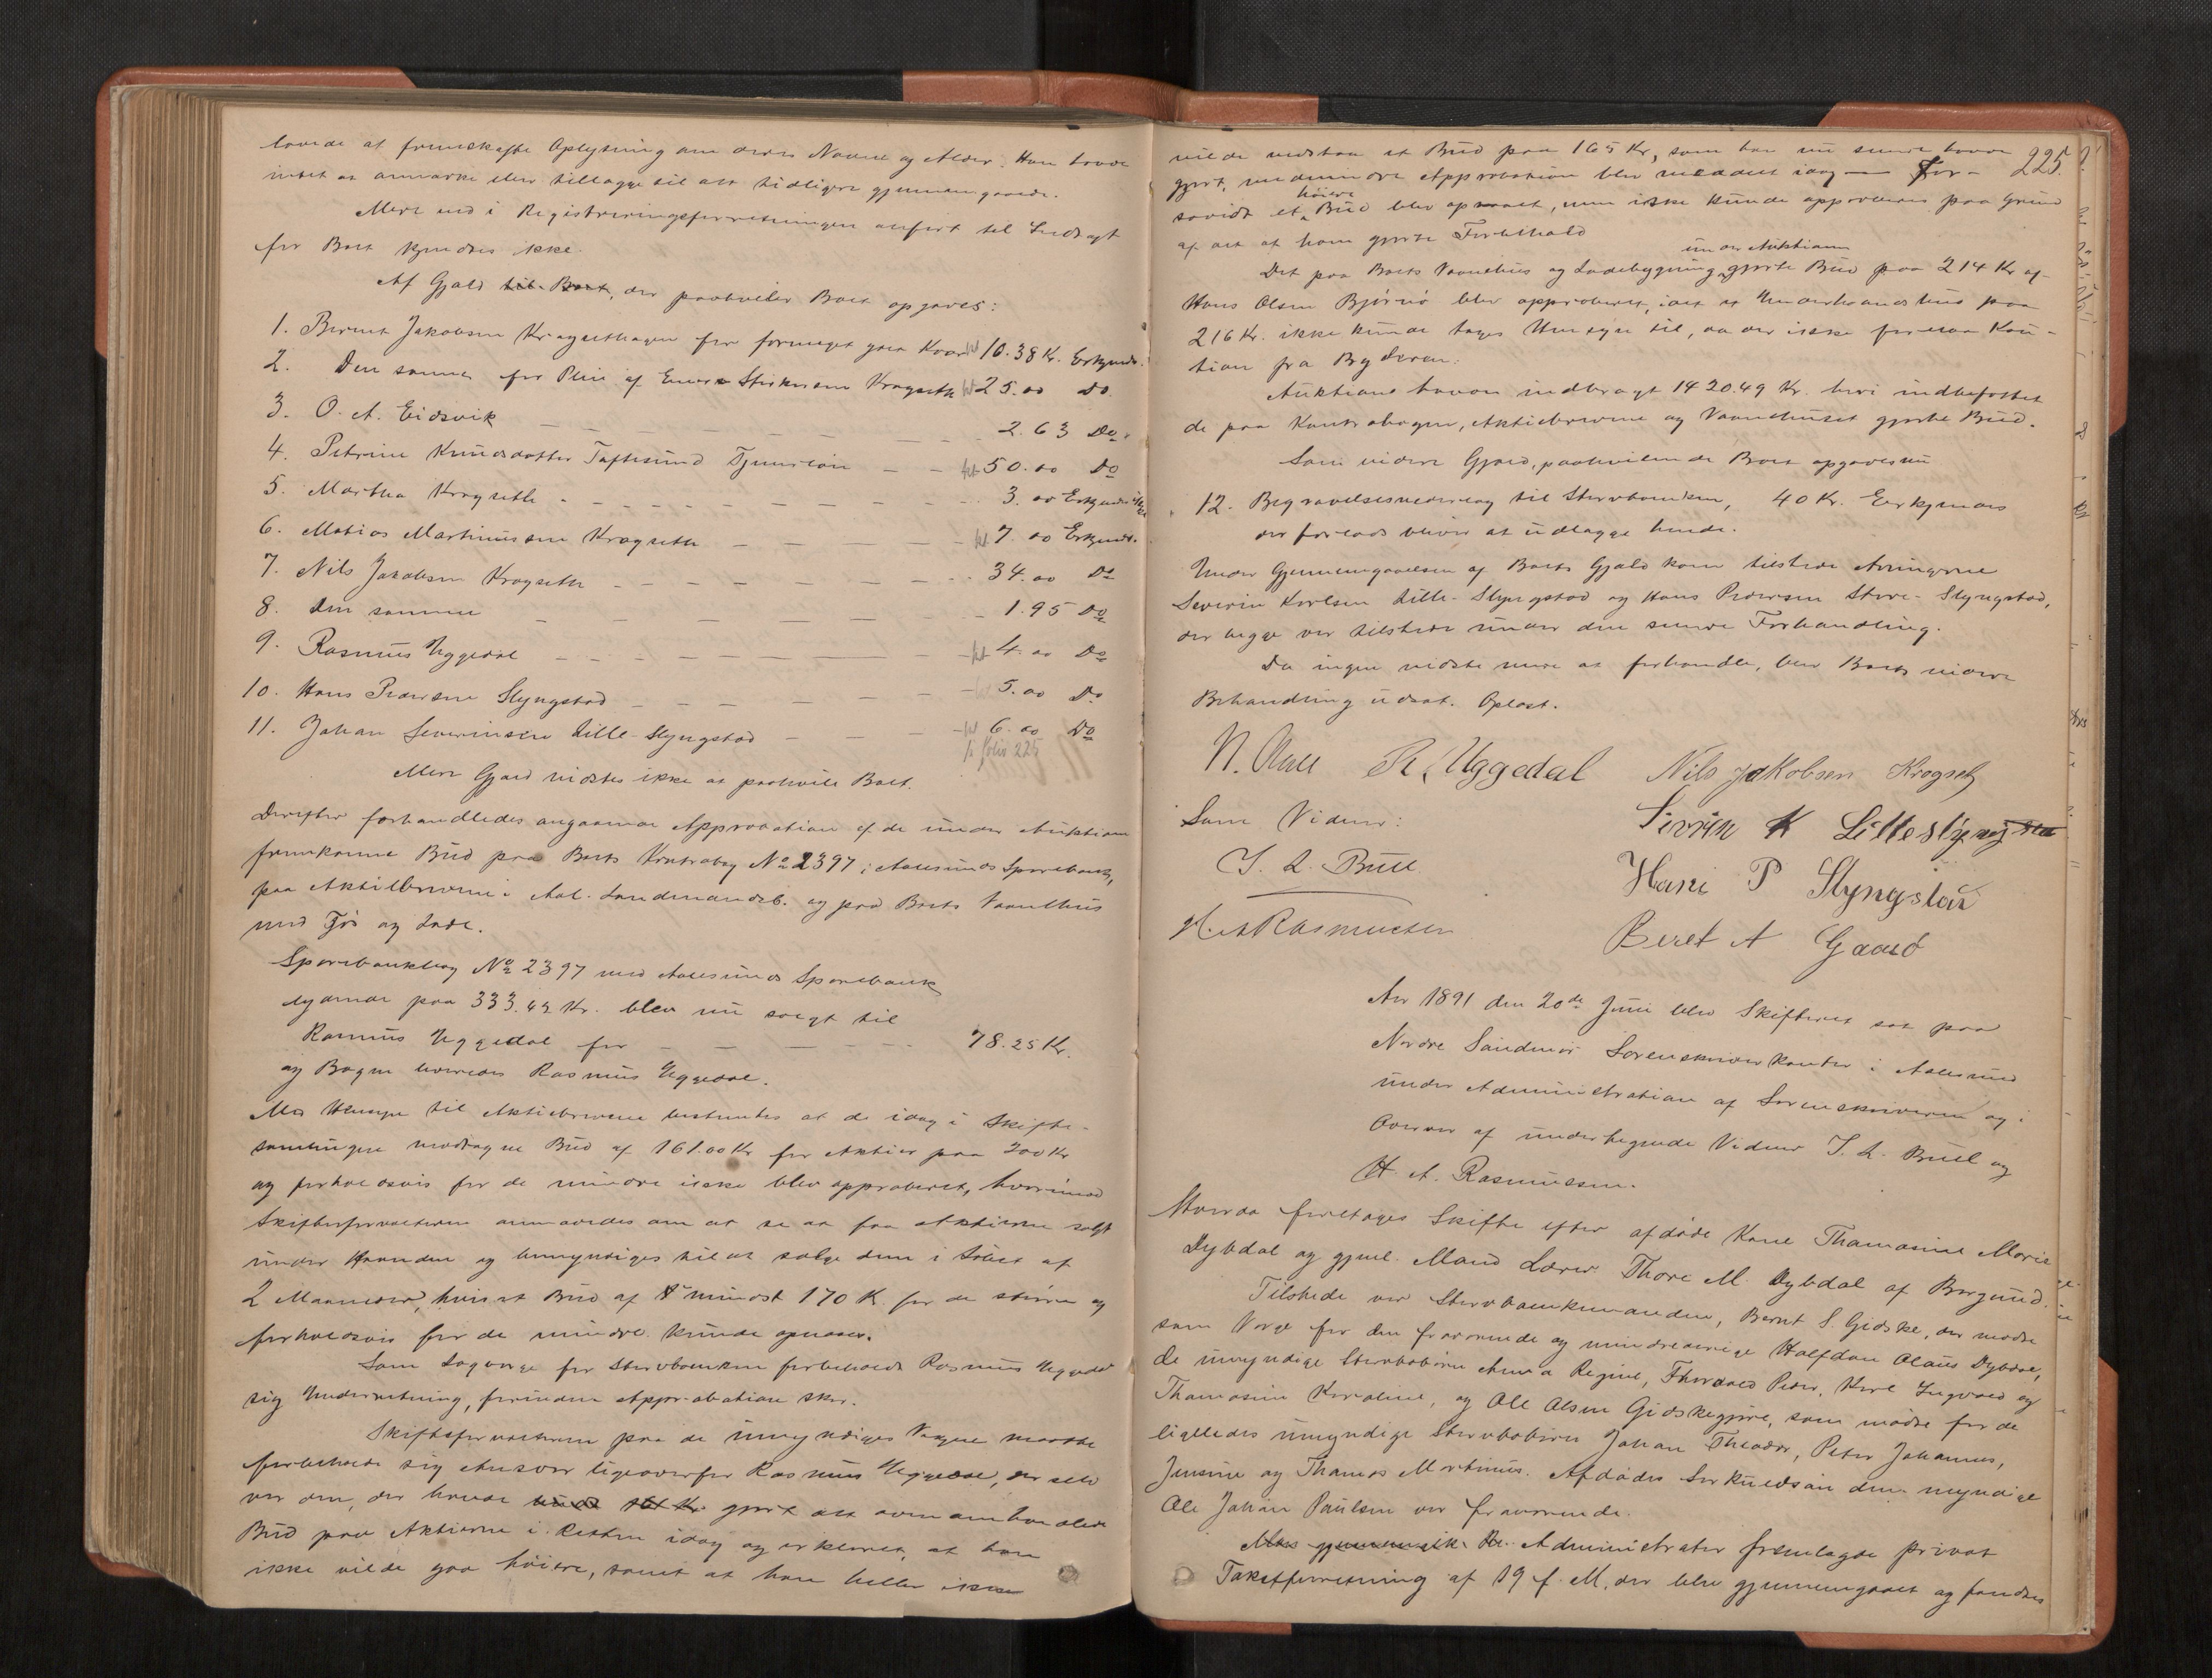 lovede at fremskaffe Oplysning om deres Navne og Alder. Han havde
intet at anmærke eller tillægge til alt tidligere gjennemgaaede.
Mere end i Registreringsforretningen anført til Indtægt
for Boet kjendtes ikke.
Af Gjæld til Boet, der paahviler Boet opgaves:
1. Bernt Jakobsen Kragsethagen for forme Kr 10.38 Kr. Erkjendt.
2. Den samme for Pleie af Enken Kragseth 25.00 Do
3. O. A. Eidsvik 2.63 Do.
4. Petrine Knudsdatter Taftesund Tjenesløn 50.00 Do
5. Martha Kragseth 3.00 Erkjendes
6. Matias Martinussen Kragseth 7.00 Erkjendt.
7. Nils Jakobsen Kragseth 34.00 Do
8. Den samme 1.95 Do
9. Rasmus Uggedal 4.00 Do
10. Hans Pedersen Slyngstad 5.00 Do
11. Johan Severinsen Lille-Slyngstad 6.00 Do
folio 225
Mere Gjæld vidstes ikke at paahvile Boet.
Derefter forhandledes angaaende Approbation af de under Auktionen
fremkomne Bud paa Boets Kontrabog No 2397 i Aalesunds Sparebank,
paa Aktiebrevene i Aal. Landmandsb. og paa Boets Vaanehus
med Fjøs og Lade.
Sparebankbog No 2397 med Aalesunds Sparebank
lydende paa 333.42 Kr. blev nu solgt til
Rasmus Uggedal for 78.25 Kr.
og Bogen leveredes Rasmus Uggedal.
Med Hensyn til Aktiebrevene bestemtes at de idag i Skifte-
samlingen modtagne Bud af 161.00 Kr for Aktier paa 200 Kr
og forholdsvis for de mindre ikke blev approberet, hvorimod
Skifteforvalteren anmodedes om at se at faa Aktierne solgt
under Haanden og bemyndiges til at sælge dem i Løbet af
2 Maaneder, hvis et Bud af mindst 170 K. for de større og
forholdsvis for de mindre kunde opnaaes.
Som Lagværge for Sterboenken forbeholdt Rasmus Uggedal
sig Underretning, forinden Approbation sker.
Skifteforvalteren paa de umyndiges Vegne maatte
forbeholde sig Ansvar ligeoverfor Rasmus Uggedal, der selv
var den, der havde gjort det ovenomhandlede
Bud paa Aktierne i Retten idag og erklæret, at han
ikke vilde gaa høiere, samt at han heller ikke
225.
vilde vedstaa et Bud paa 165 Kr, som han nu senere havde
gjort, medmindre Approbation blev meddelt idag — For-
saavidt et høiere Bud blev opnaaet, men ikke kunde approberes paa Grund
af det at ham gjorte Forbehold
Det paa Boets Vaanehus og Ladebygning under Auktionen gjorte Bud paa 214 Kr af
Hans Olsen Bjørnø blev approberet, idet et Underhaandsbud paa
216 Kr. ikke kunde tages Hensyn til, da der ikke forelaa Kau-
tion fra Byderen.
Auktionen havde indbragt 1420.49 Kr. heri indbefattet
de paa Kontrabogen, Aktiebrevene og Vaanehuset gjorte Bud.
Som videre Gjæld, paahvilende Boet opgaves nu
12. Begravelsesvederlag til Sterboenken, 40 Kr. Erkjendes
der forlods bliver at udlægge hende.
Under Gjennemgaaelsen af Boets Gjæld kom tilstede Arvingerne
Severin Karlsen Lille-Slyngstad og Hans Pedersen Store-Slyngstad,
der begge var tilstede under den senere Forhandling.
Da ingen vidste mere at forhandle, blev Boets videre
Behandling udsat. Oplæst.
R. Uggedal Nils Jakobsen Kragseth
Som Vidner: Sivrin K Lilleslyngstad
J. L. Bull Hans P Slyngstad
H. A Rasmussen Beret A Gaasø
Aar 1891 den 20de Juni blev Skifteret sat paa
Nordre Søndmør Sorenskriverkontor i Aalesund
under Administration af Sorenskriveren og i
Overvær af undertegnede Vidner J. L. Bull og
H. A. Rasmussen.
Hvorda foretoges Skifte efter afdøde Kone Thomasine Marie
Dybdal og gjenl. Mand Lærer Thore M. Dybdal af Borgund.
Tilstede var Sterboenkemanden, Bernt S. Gidske, der mødte
som Værge for den fraværende og mindreaarige Halfdan Olaus Dybdal,
de umyndige Sterbobørn Anna Regine, Thorvald Peter, Karl Ingvald og
Thomasine Karoline, og Ole Olsen Gidskegjøre, som mødte for de
ligeledes umyndige Sterbobørn Johan Theodor, Peter Johannes,
Jensine og Thomas Martinus. Afdødes Særkuldsøn den myndige
Ole Johan Paulsen var fraværende.
Man gjennemgik De. Administrator fremlagde privat
Takstforretning af 19 f. M. der blev gjennemgaaet og fandtes